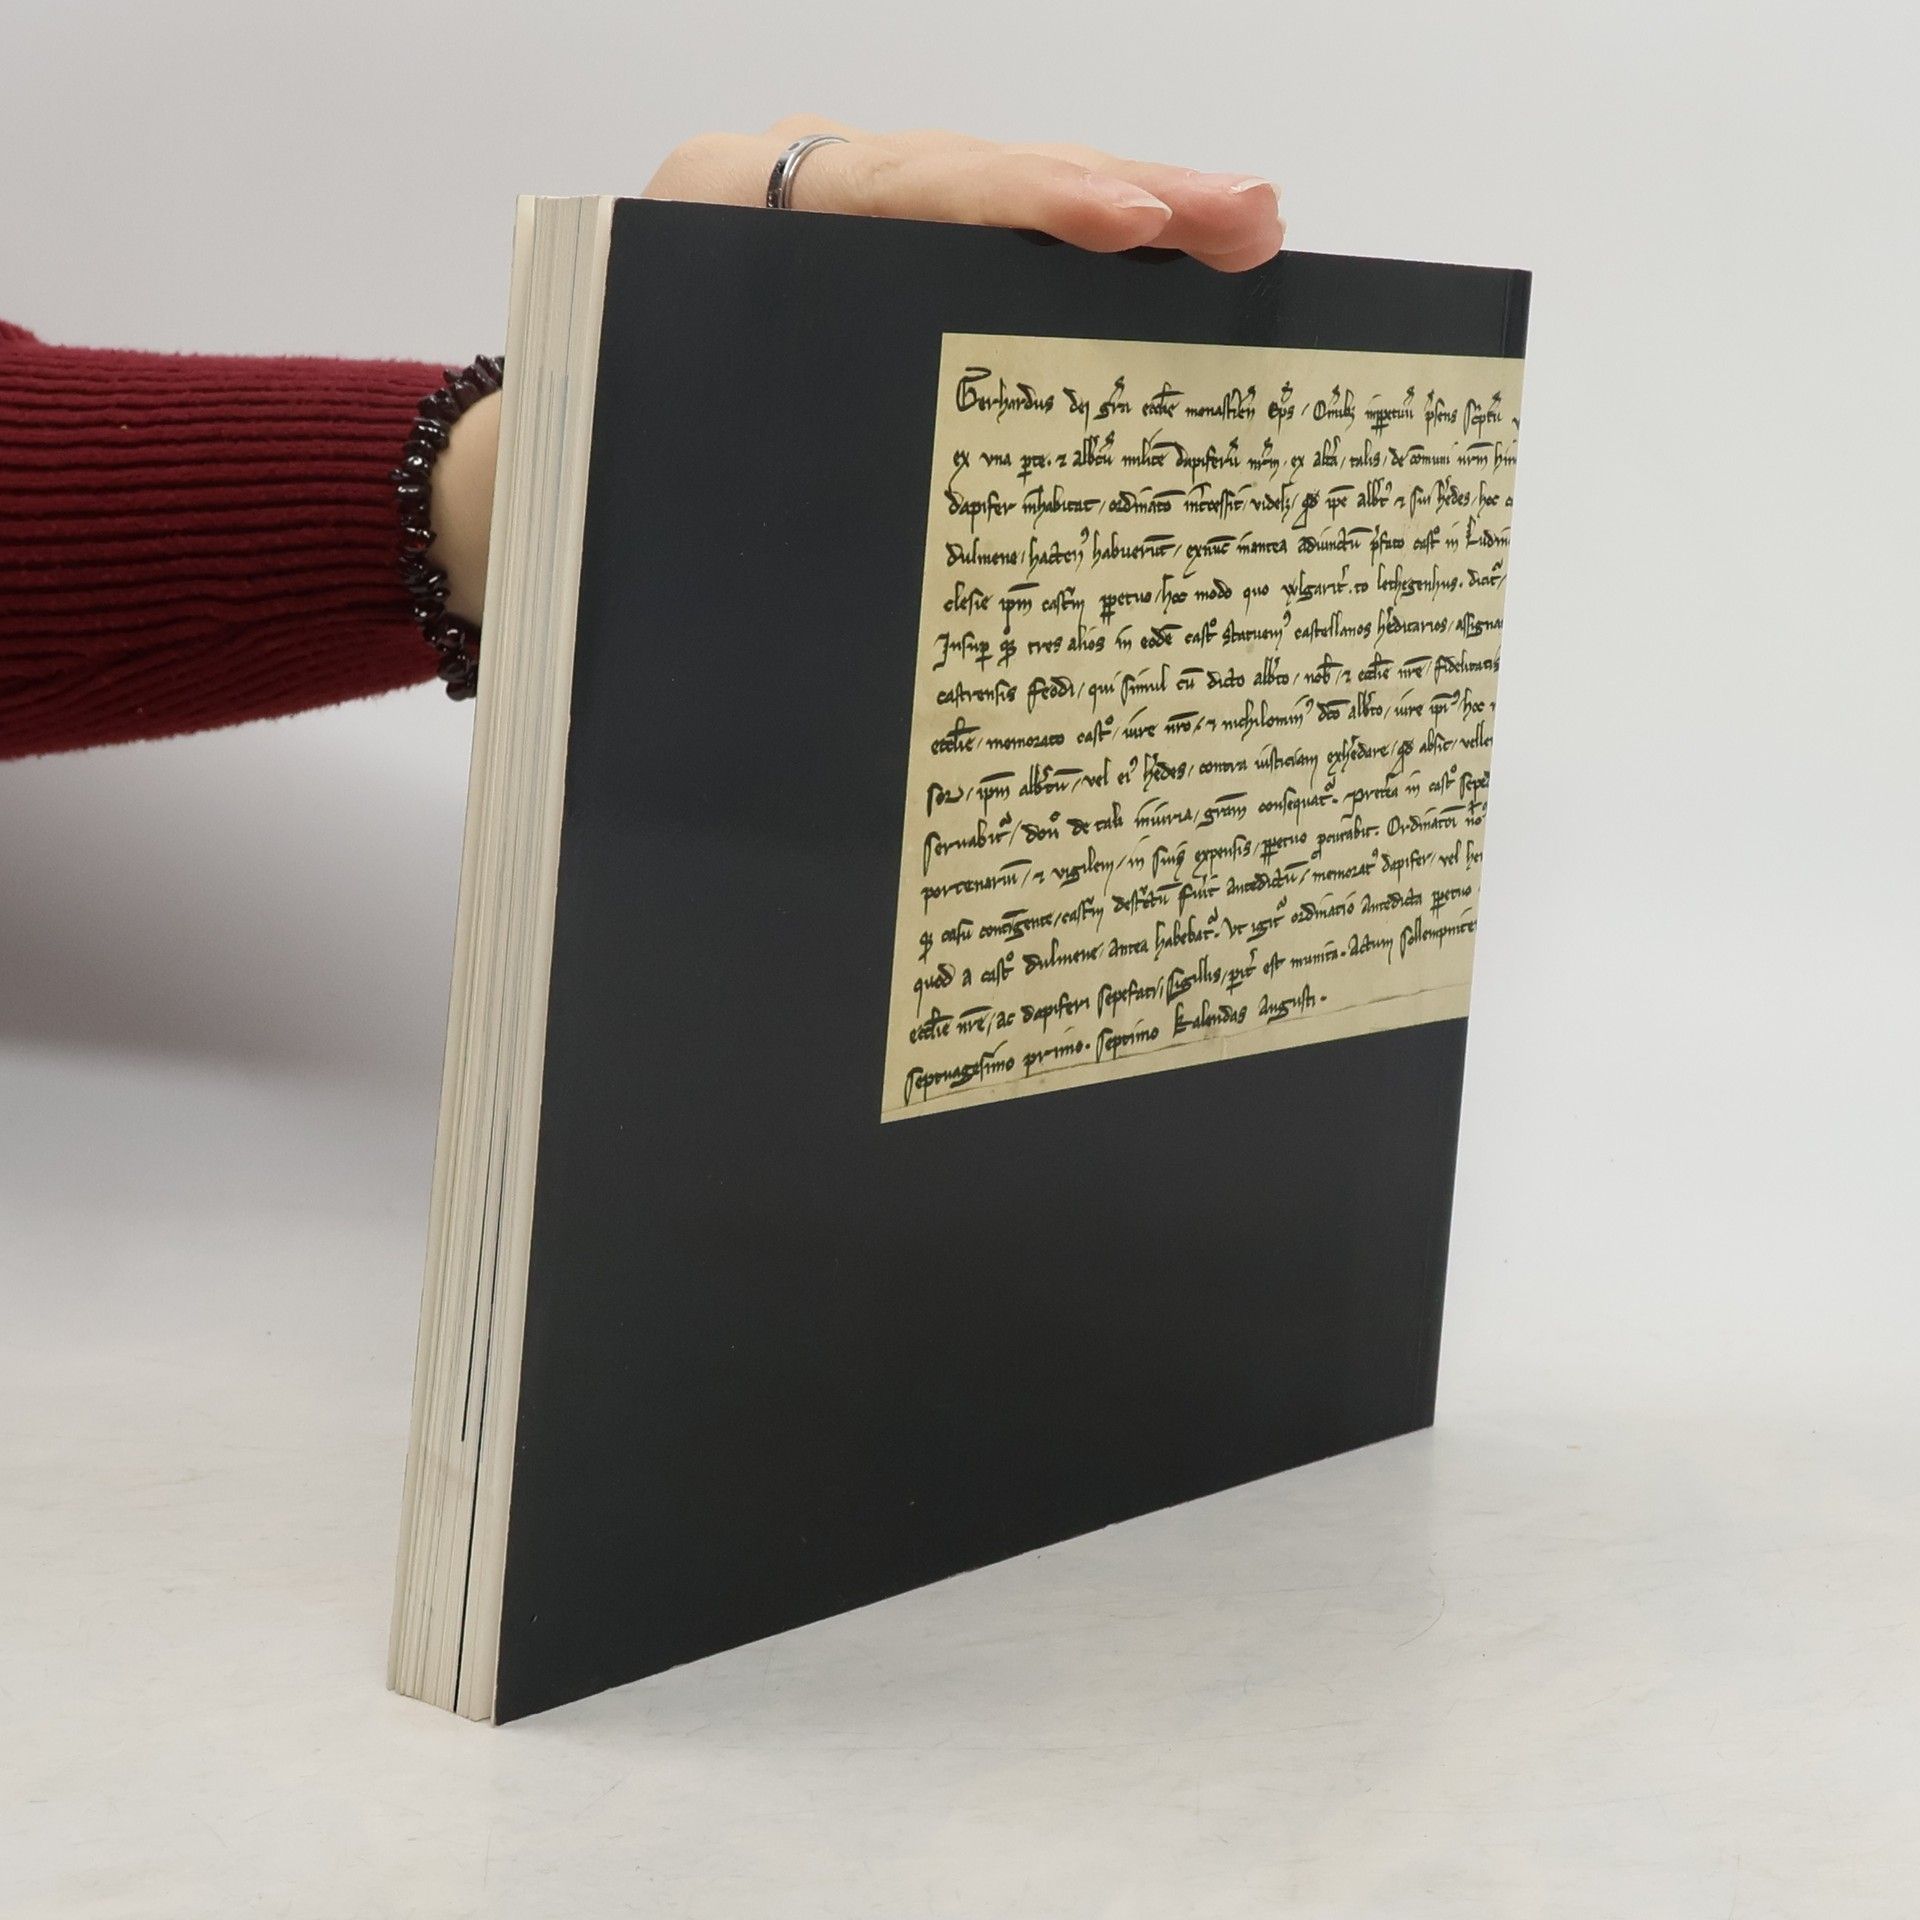 Gerhardus dei gr̄a eccl̄ie monastien̄ Ep̄s / Om̄ibꝫ inꝑpetuū p̄sens Sc̄ptū
ex vna ꝑte. ⁊ alb̄tū milite᷒ dapiferū nr̄m. ex alt̄a / talis / de c̄omuni nr̄m
dapifer inhabitat / ordinat̄o int̄cessit / videlꝫ / qd̄ ip̄e alb̄tꝰ ⁊ sui h̄edes / hoc
dulmene / hactenꝰ habuerūt / exnūc inantea adiunctū p̄fato cast̊ in Ludin
clesie ip̄m cast̄m ꝑpetuo / hoc modo quo wlgarit̄. to lethegenhus. dicit᷑ /
Insuꝑ tres alios in eodē cast̊ statuemꝰ castellanos h̄editarios / assigna
castrensis feodi / qui simul cū dicto alb̄to / nob̄ / ⁊ eccl̄ie nr̄e / fidelitatis
eccl̄ie / memorato cast̊ / iure nr̄o / ⁊ nichilominꝰ dc̄o alb̄to / iure ip̄iꝰ / hoc
ip̄m alb̄tū / vel eiꝰ h̄edes / contra iusticiam exh̄edare / qd̄ absit / velle
seruabit᷑ / don̊ de tali iniuria / gr̄am consequat᷑. Pret̄ea in cast̊ sepe
portenariū / ⁊ vigilem / in suis expensis / ꝑpetuo ꝓcurabit. Ordinat̄oi
casu contīgente / cast̄m dest̄ctū fuīt antedictū / memoratꝰ dapifer / vel
quod a cast̊ dulmene / antea habebat᷑. Vt igit᷑ ordinatio antedicta ꝑpetuo
eccl̄ie nr̄e / ac dapiferi sepefati / sigillis / ꝑit̄ est munita. Actum sollempnite
septuagesimo primo. septimo kalendas Augusti.